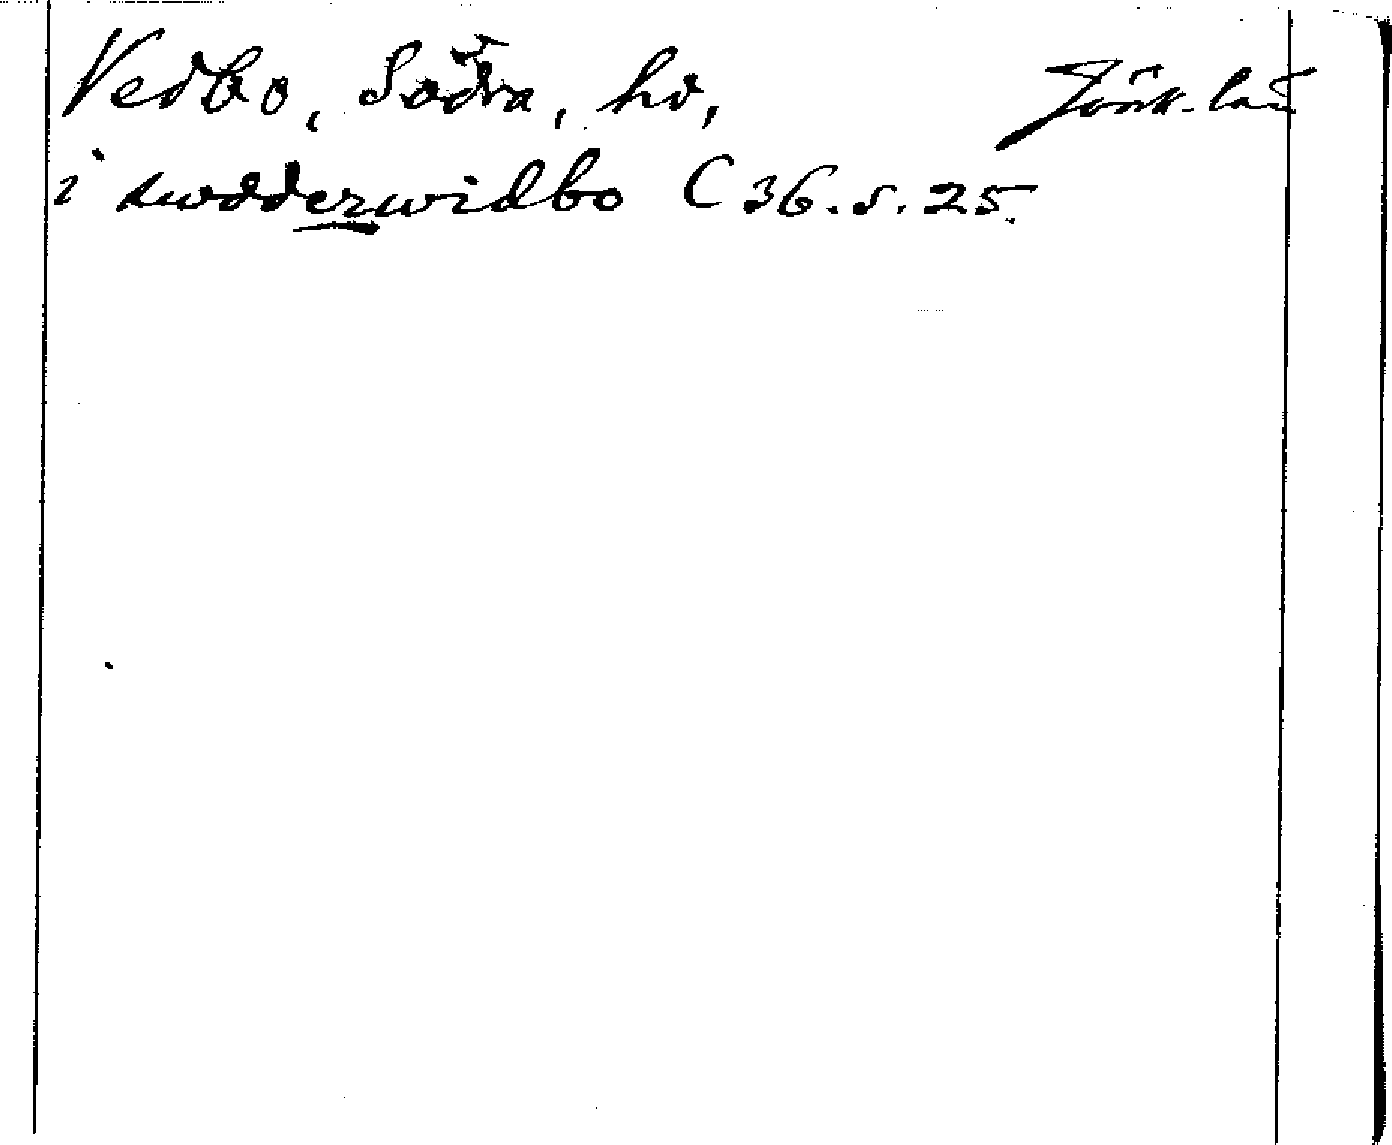 Vedbo, Södra, hd, Jönk. län
i swdderwidbo C 36. s. 25.